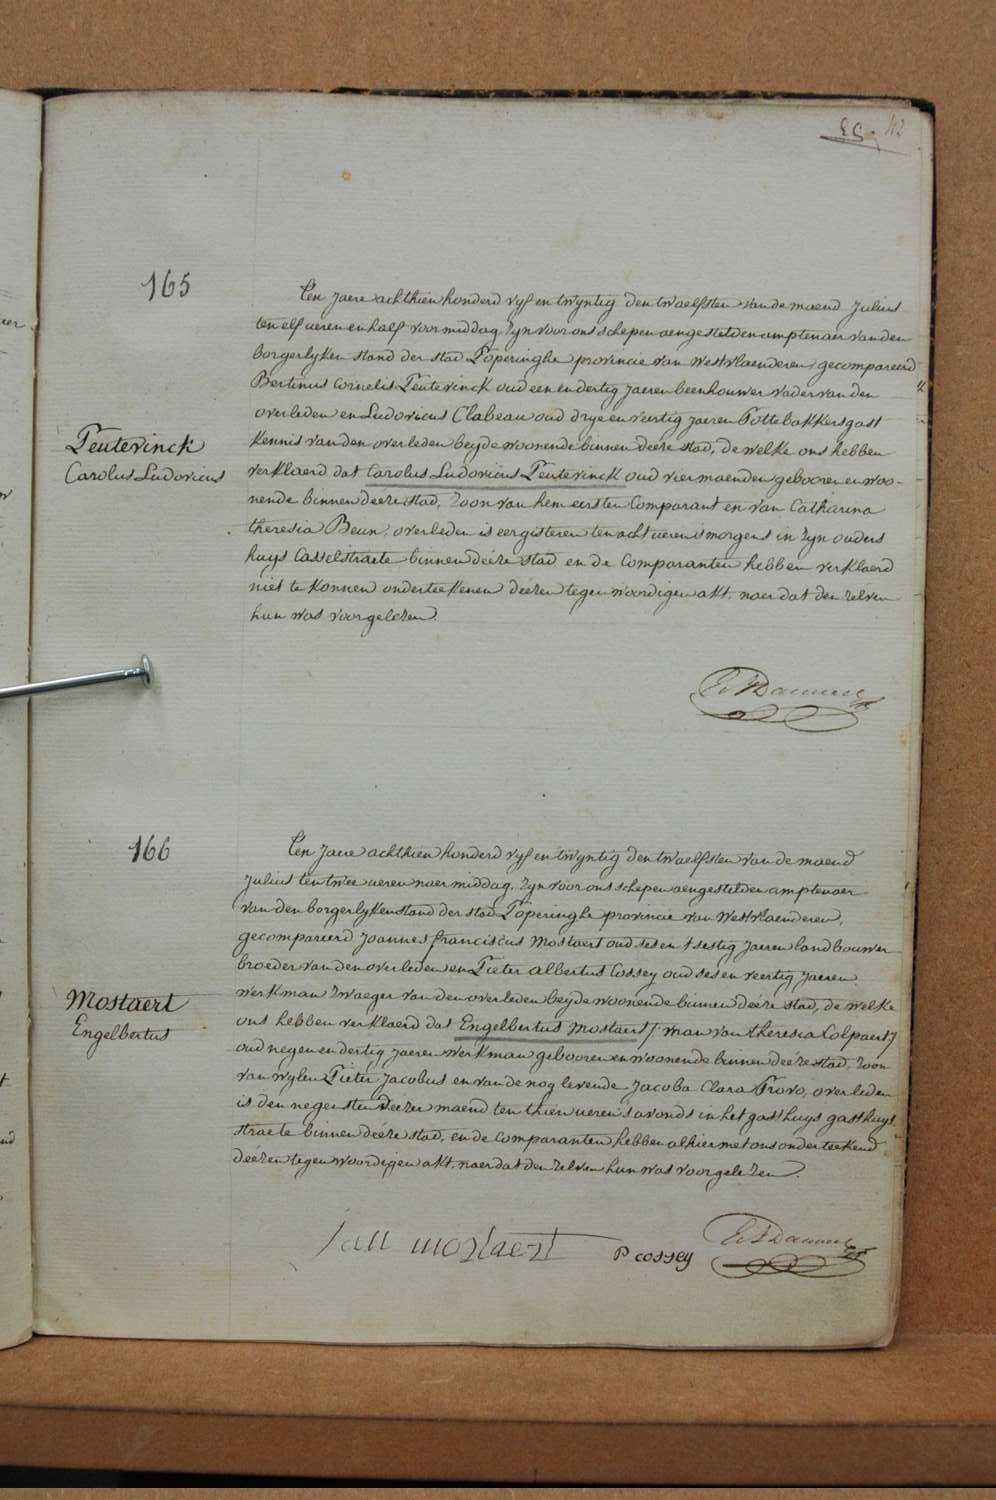 42
165
Ten Jaere achthien honderd vyf en twyntig den twaelfsten van de maend Julius
ten elf ueren en half voormiddag, zyn voor ons schepen aengestelden amptenaer van den
borgerlyken stand der stad Poperinghe provincie van Westvlaenderen, gecompareerd
Bertinus Cornelis Teuterinck oud een en dertig jaeren beenhouwer vader van den
overleden en Ludovicus Clabeau oud drye en veertig jaeren Pottebakkersgast
kennis van den overleden beyde woonende binnen deéze stad, de welke ons hebben
verklaerd dat Carolus Ludovicus Teuterinck oud vier maenden gebooren en woo-
nende binnen deéze stad, zoon van hem eersten Comparant en van Catharina
theresia Beun, overleden is eergisteren ten acht ueren ismorgens in zyn ouders
huys Casselstraete binnen deéze stad en de Comparanten hebben verklaerd
niet te konnen onderteekenen deézen tegenwoordigen akt, naer dat den zelven
hun was voorgelezen.
Teuterinck
Carolus Ludovicus
166
Ten Jaere achthien honderd vyf en twyntig den twaelfsten van de maend
Julius ten twee ueren naermiddag, zyn voor ons schepen aengestelden amptenaer
van den borgerlyken stand der stad Poperinghe provincie van Westvlaenderen,
gecompareerd Joannes franciscus Mostaert oud ses en t'sestig jaeren landbouwer
broeder van den overleden en Pieter albertus Cossey oud ses en veertig jaeren
werkman zwaeger van den overleden beyde woonende binnen deéze stad, de welke
ons hebben verklaerd dat Engelbertus Mostaert /: man van theresia Colpaert /
oud negen en dertig jaeren werkman gebooren en woonende binnen deéze stad, zoon
van wylen Pieter Jacobus en van de nog levende Jacoba Clara Provo, overleden
is den negensten deezer maend ten thien ueren s'avonds in het gasthuys gasthuys
straete binnen deéze stad, en de comparanten hebben alhier met ons onderteekend
deezen tegenwoordigen akt, naer dat den zelven hun was voorgelezen.
Mostaert
Engelbertus
jan mostaert P cossey